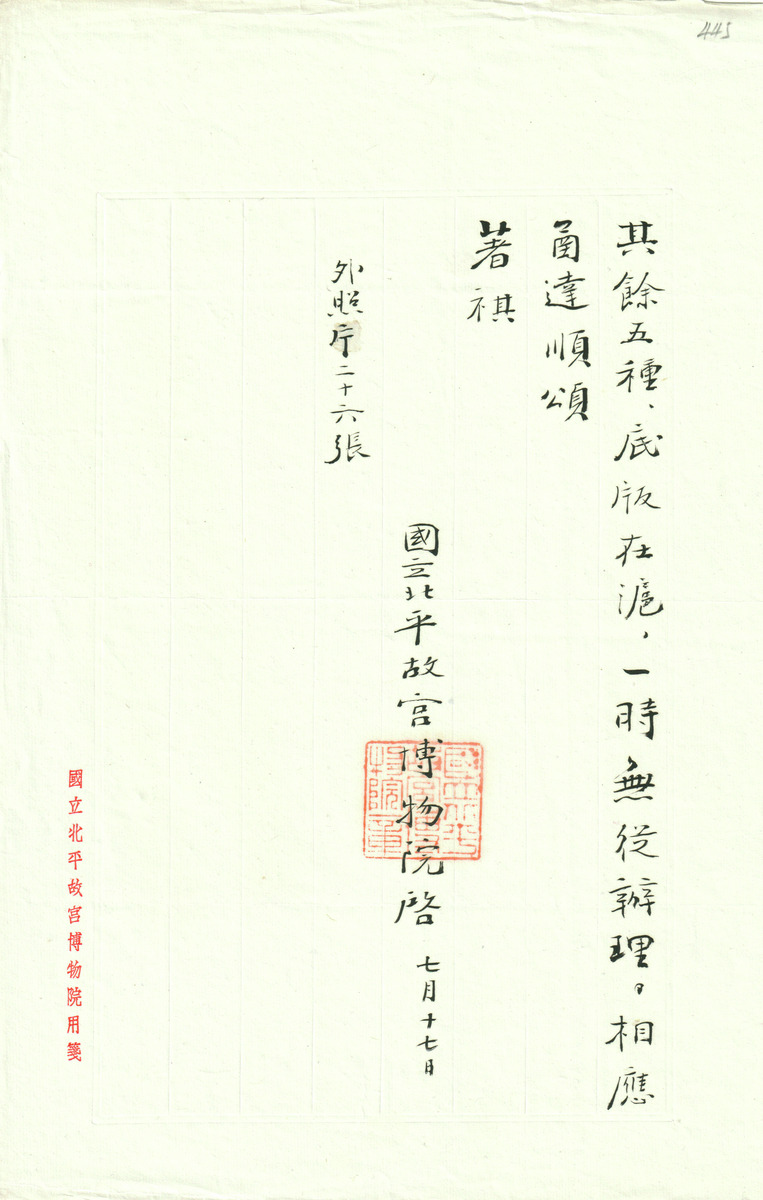 445
其餘五種、底版在滬，一時無從辦理。相應
函達順頌
著祺
國立北平故宮博物院啓 七月十七日
國立北平故宮博物院章
外照片二十六張
國立北平故宮博物院用箋